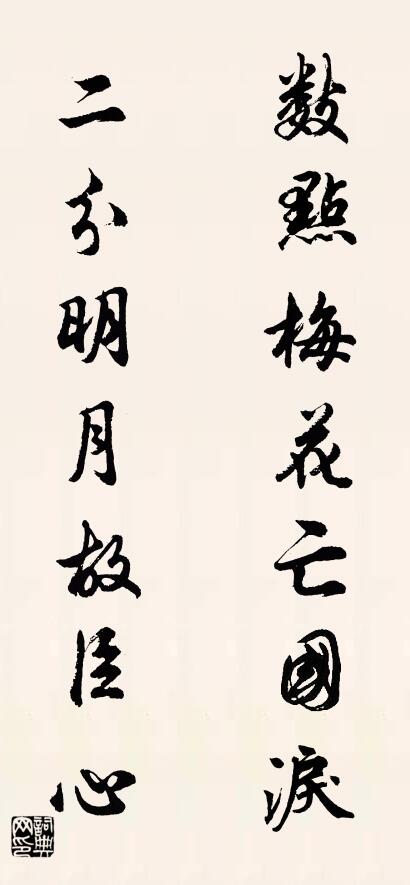 數點梅花亡國淚
二分明月故臣心
詞典網印